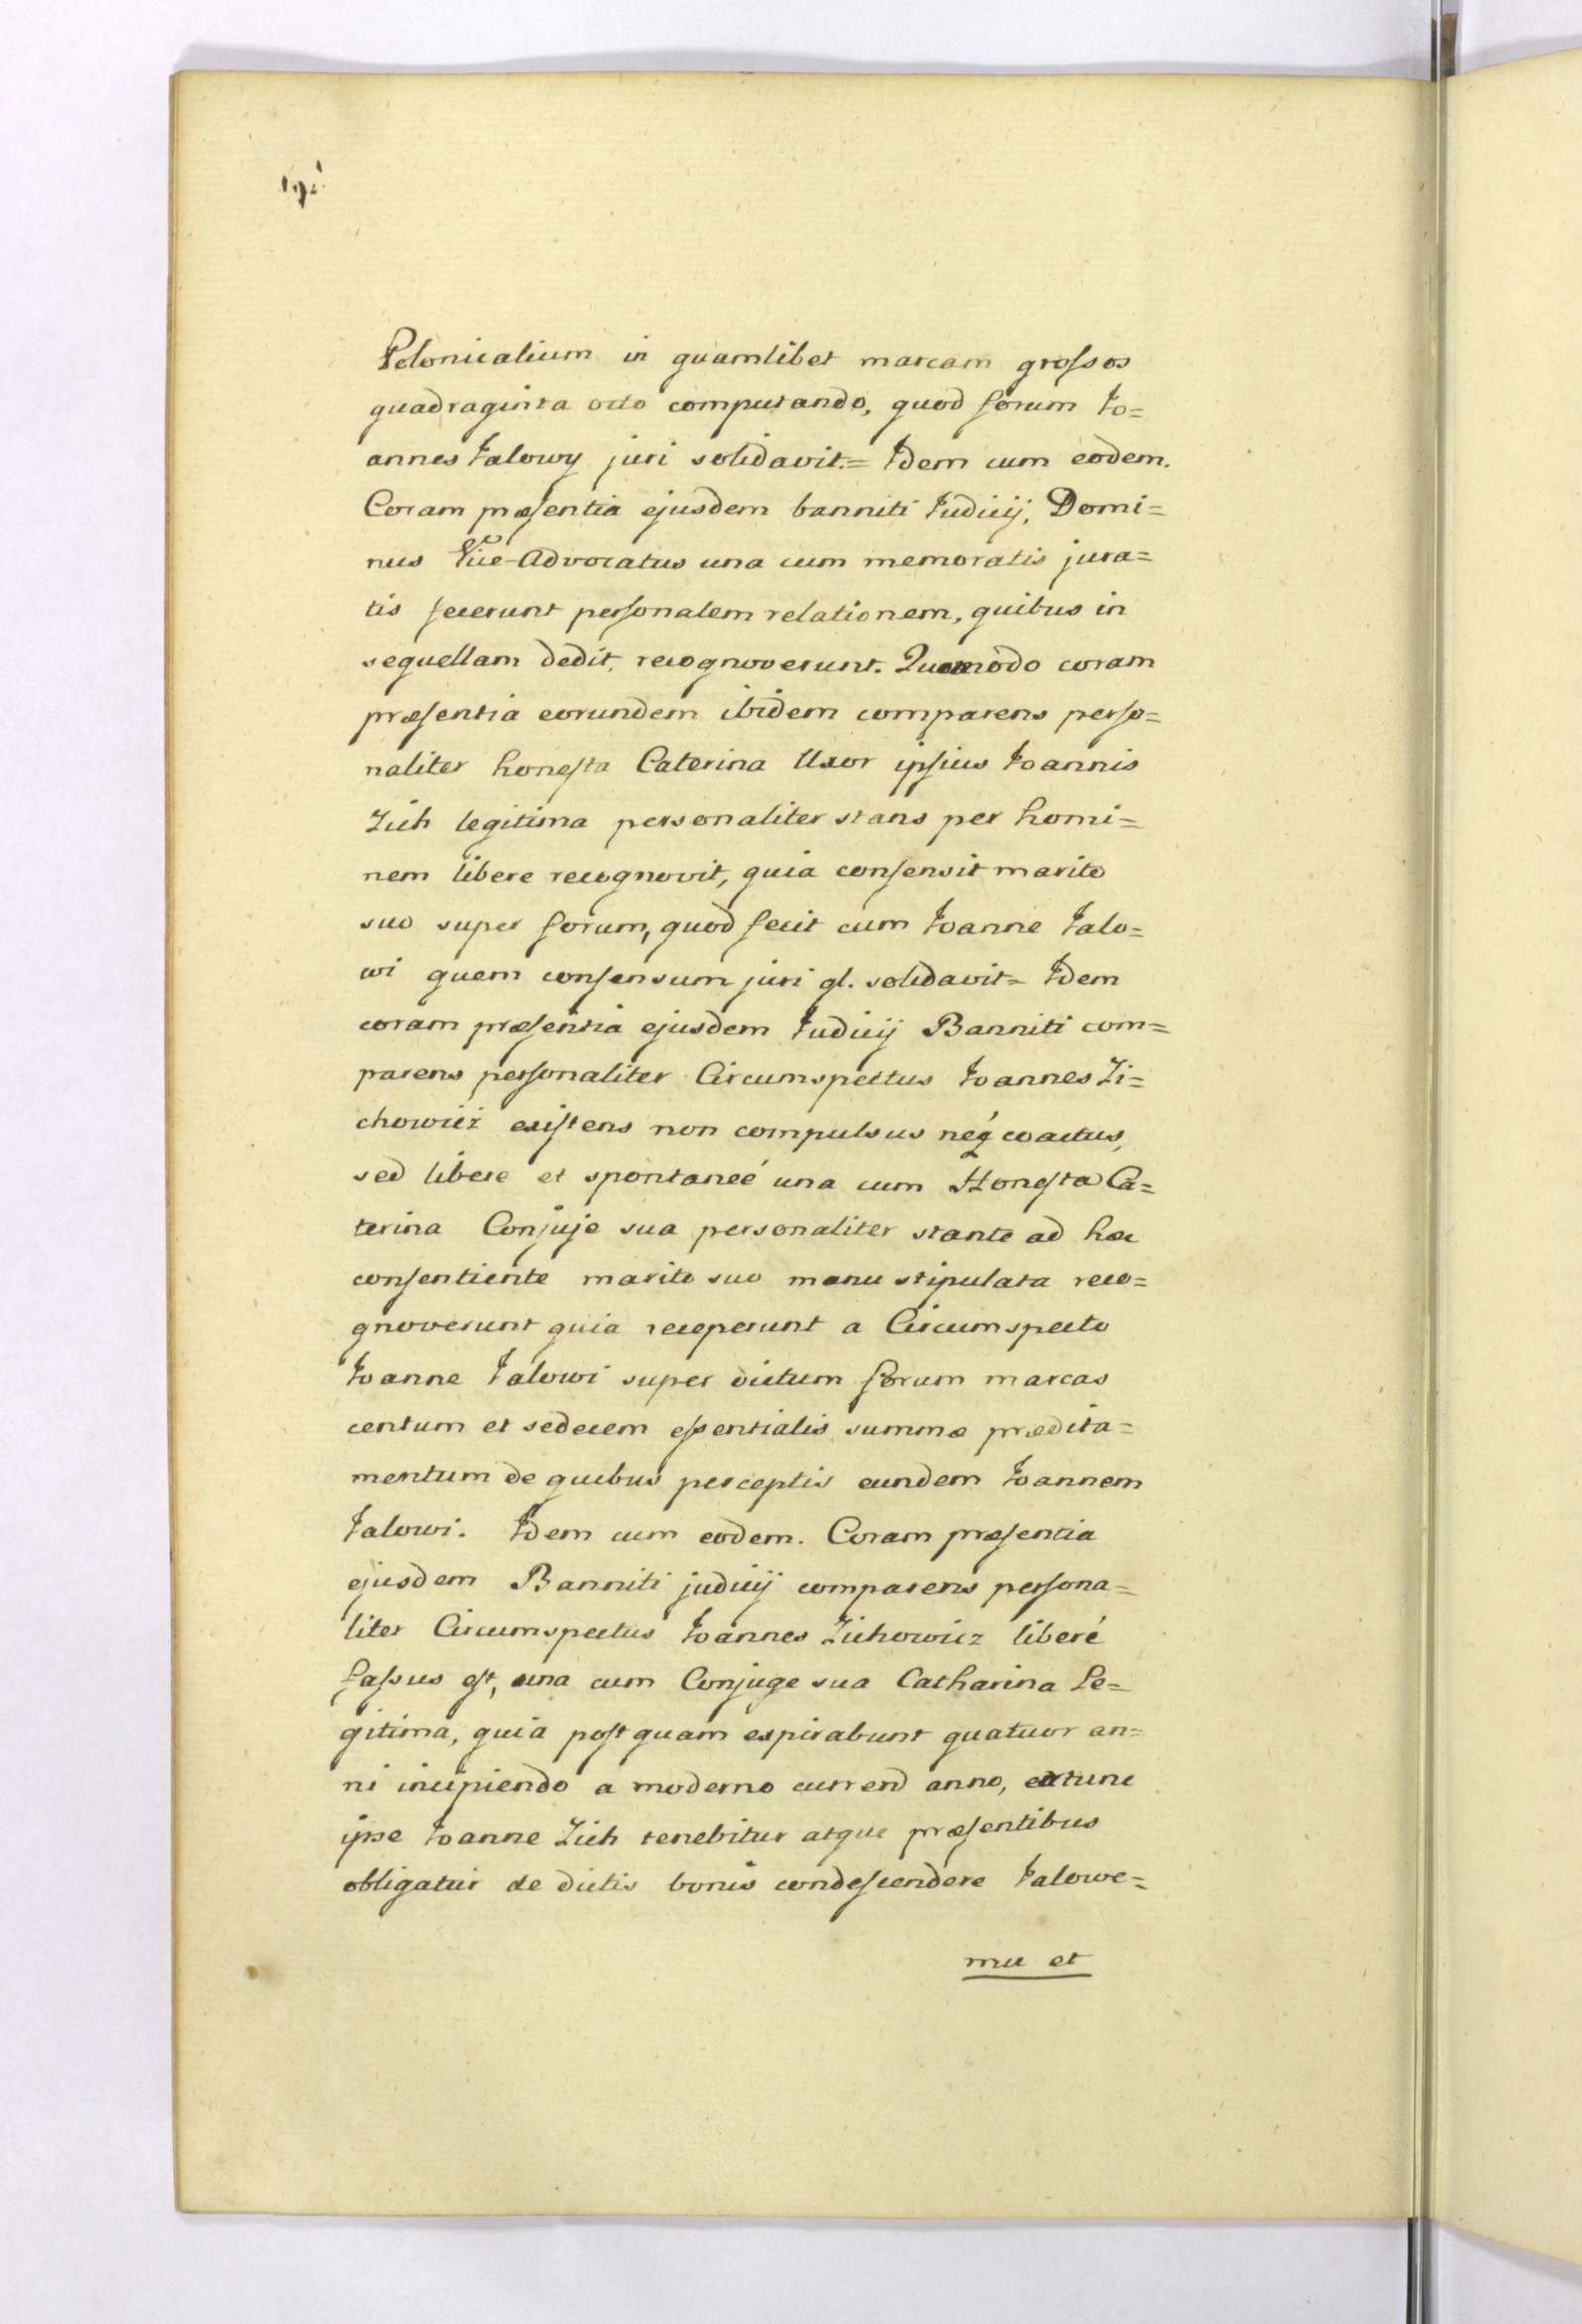 Polonicalium in quamlibet marcam grossos
quadraginta octo computando, quod forum Jo=
annes Jalowy juri solidavit.= Idem cum eodem.
Coram præsentia ejusdem banniti Judicij, Domi=
nus Vice-Advocatus una cum memoratis jura=
tis fecerunt personalem relationem, quibus in
sequellam dedit, recognoverunt. Quomodo coram
præsentia eorundem ibidem comparens perso=
naliter honesta Caterina Uxor ipsius Joannis
Zich legitima personaliter stans per homi=
nem libere recognovit, quia consensit marito
suo super forum, quod fecit cum Joanne Jalo=
wi quem consensum juri gl. solidavit= Idem
coram præsentia ejusdem Judicij Banniti com=
parens personaliter Circumspectus Joannes Zi=
chowicz existens non compulsus neq coactus,
sed libere et spontaneé una cum Honesta Ca=
terina Conjuje sua personaliter stante ad hæc
consentiente marito suo manu stipulata reco=
gnoverunt quia receperunt a Circumspecto
Joanne Jalowi super dictum forum marcas
centum et sedecem essentialis summæ prædita=
mentum de quibus perceptis eundem Joannem
Jalowi. Idem cum eodem. Coram præsentia
ejusdem Banniti judicij comparens persona=
liter Circumspectus Joannes Zichowicz liberé
fassus est, una cum Conjuge sua Catharina Le=
gitima, quia post quam expirabunt quatuor an=
ni incipiendo a moderno currend anno, extunc
ipse Joanne Zich tenebitur atque præsentibus
obligatur de dictis bonis condescendere Jalowe=
mu et